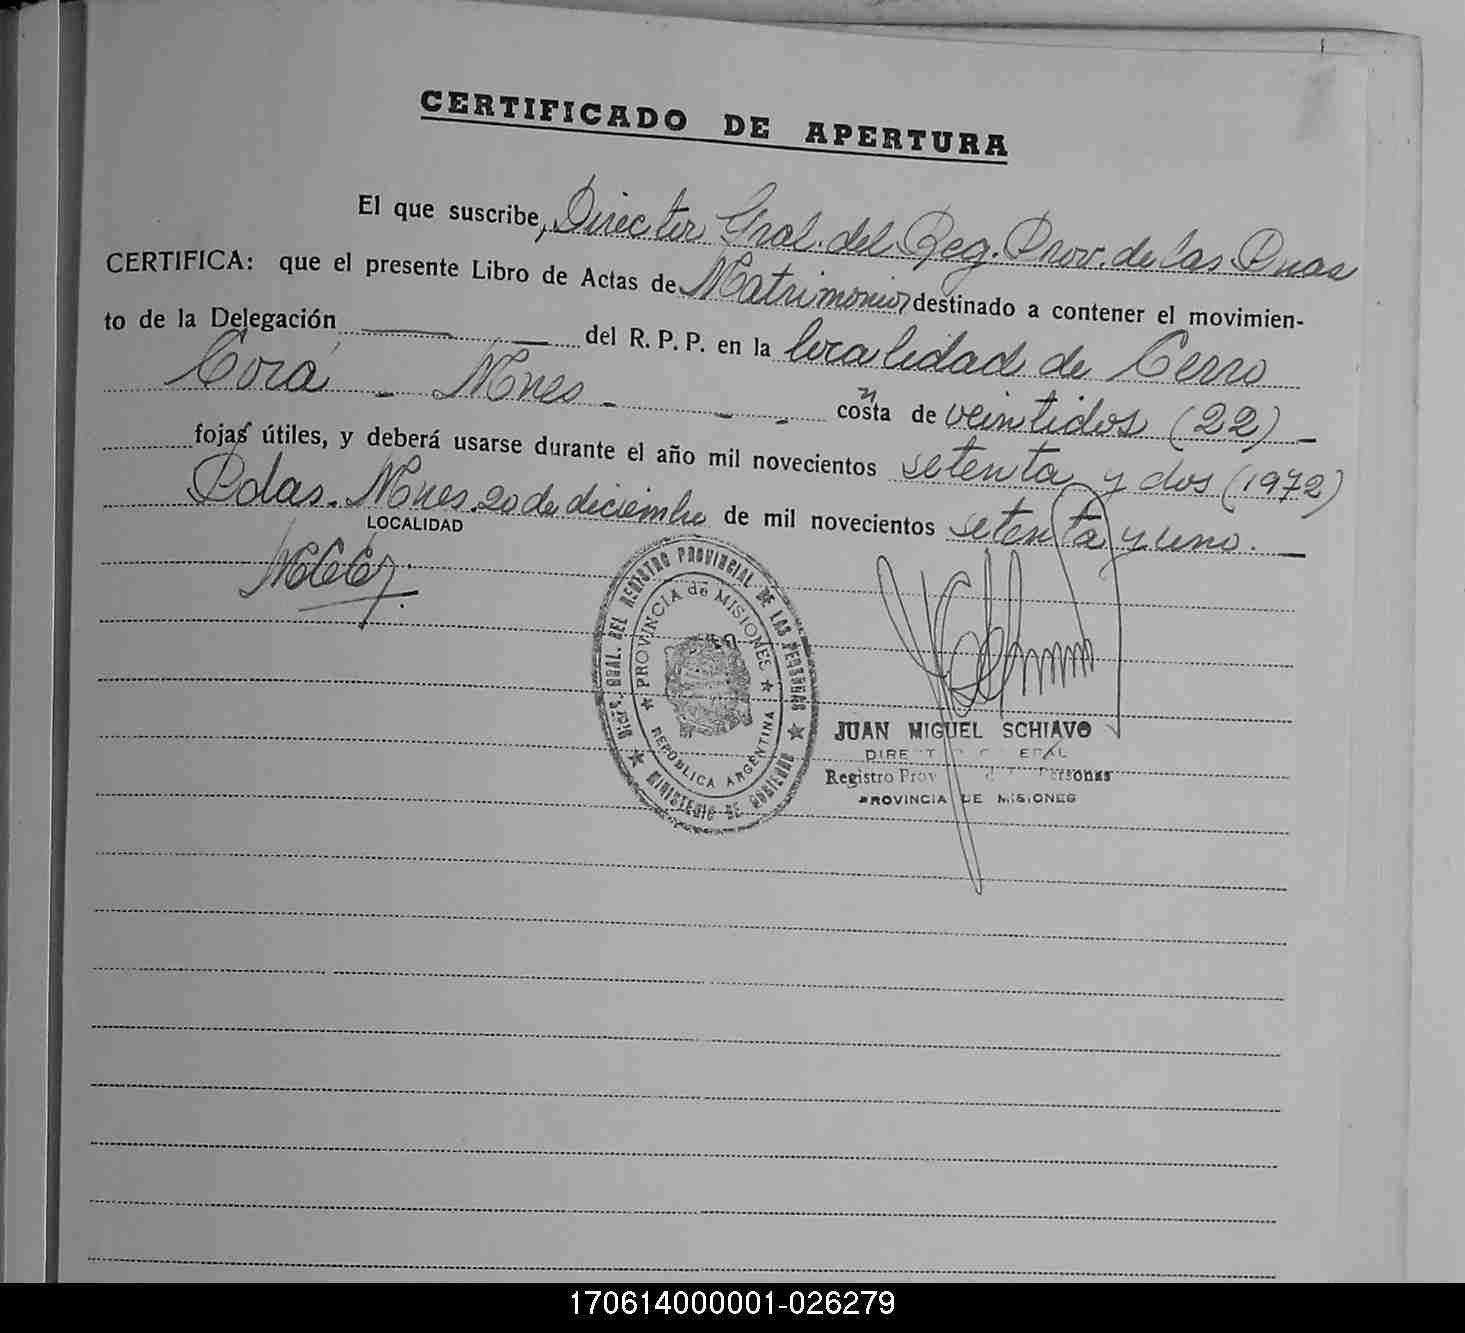 CERTIFICADO DE APERTURA
El que suscribe, Director Gral. del Reg. Prov. de las Pnas
CERTIFICA: que el presente Libro de Actas de Matrimonio, destinado a contener el movimien-
to de la Delegación del R. P. P. en la localidad de Cerro
Corá - Mnes - - - consta de veintidos (22) -
fojas útiles, y deberá usarse durante el año mil novecientos setenta y dos (1972)
Pdas. Mnes. 20 de diciembre de mil novecientos setenta y uno. -
LOCALIDAD
DIRC. GRAL. DEL REGISTRO PROVINCIAL DE LAS PERSONAS
★ MINISTERIO DE GOBIERNO ★
★ PROVINCIA de MISIONES ★
REPÚBLICA ARGENTINA
JUAN MIGUEL SCHIAVO
Registro Prov Personas
PROVINCIA DE MISIONES
170614000001-026279